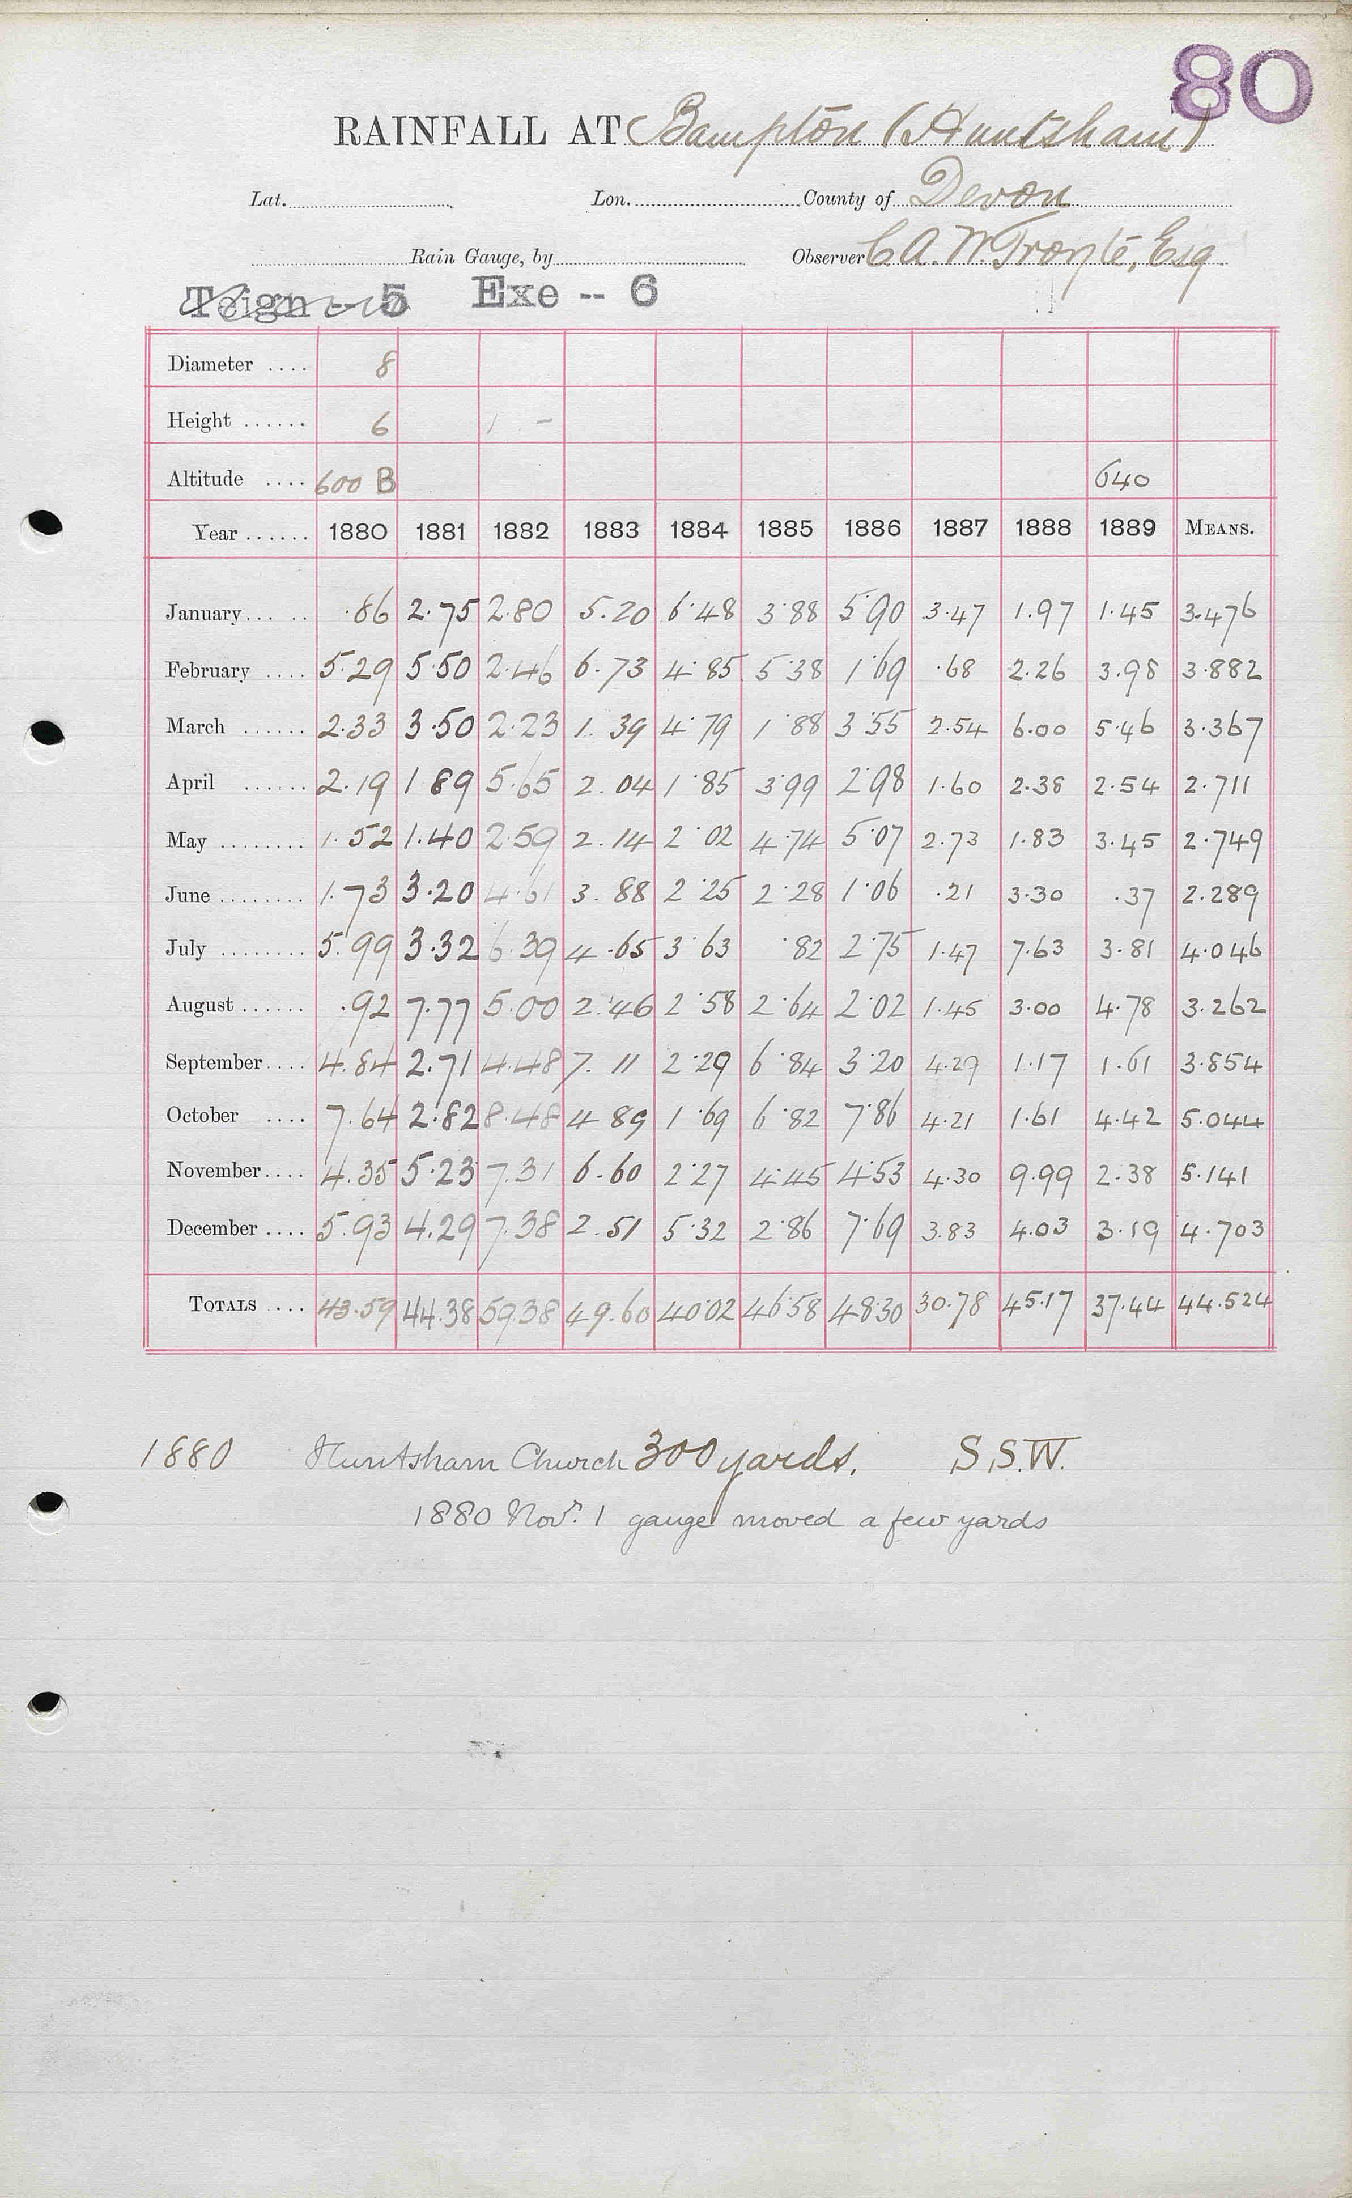 80
RAINFALL AT Bampton (Huntsham)
Lat. Lon. County of Devon
Rain Gauge, by Observer C A. W. Troyte, Esq
Teign -- 5 Exe -- 6
Diameter .... 8
Height ...... 6
Altitude .... 600 B 640
Year ...... 1880 1881 1882 1883 1884 1885 1886 1887 1888 1889 MEANS.
January... .. .86 2.75 2.80 5.20 6.48 3.88 5.90 3.47 1.97 1.45 3.476
February .... 5.29 5.50 2.46 6.73 4.85 5.38 1.69 .68 2.26 3.98 3.882
March ...... 2.33 3.50 2.23 1.39 4.79 1.88 3.55 2.54 6.00 5.46 3.367
April ...... 2.19 1.89 5.65 2.04 1.85 3.99 2.98 1.60 2.38 2.54 2.711
May ........ 1.52 1.40 2.59 2.14 2.02 4.74 5.07 2.73 1.83 3.45 2.749
June ........ 1.73 3.20 4.61 3.88 2.25 2.28 1.06 .21 3.30 .37 2.289
July ........ 5.99 3.32 6.39 4.65 3.63 .82 2.75 1.47 7.63 3.81 4.046
August ...... .92 7.77 5.00 2.46 2.58 2.64 2.02 1.45 3.00 4.78 3.262
September.... 4.84 2.71 4.48 7.11 2.29 6.84 3.20 4.29 1.17 1.61 3.854
October .... 7.64 2.82 8.48 4.89 1.69 6.82 7.86 4.21 1.61 4.42 5.044
November.... 4.35 5.23 7.31 6.60 2.27 4.45 4.53 4.30 9.99 2.38 5.141
December .... 5.93 4.29 7.38 2.51 5.32 2.86 7.69 3.83 4.03 3.19 4.703
TOTALS .... 43.59 44.38 59.38 49.60 40.02 46.58 48.30 30.78 45.17 37.44 44.524
1880 Huntsham Church 300 yards. S.S.W.
1880 Novr. 1 gauge moved a few yards